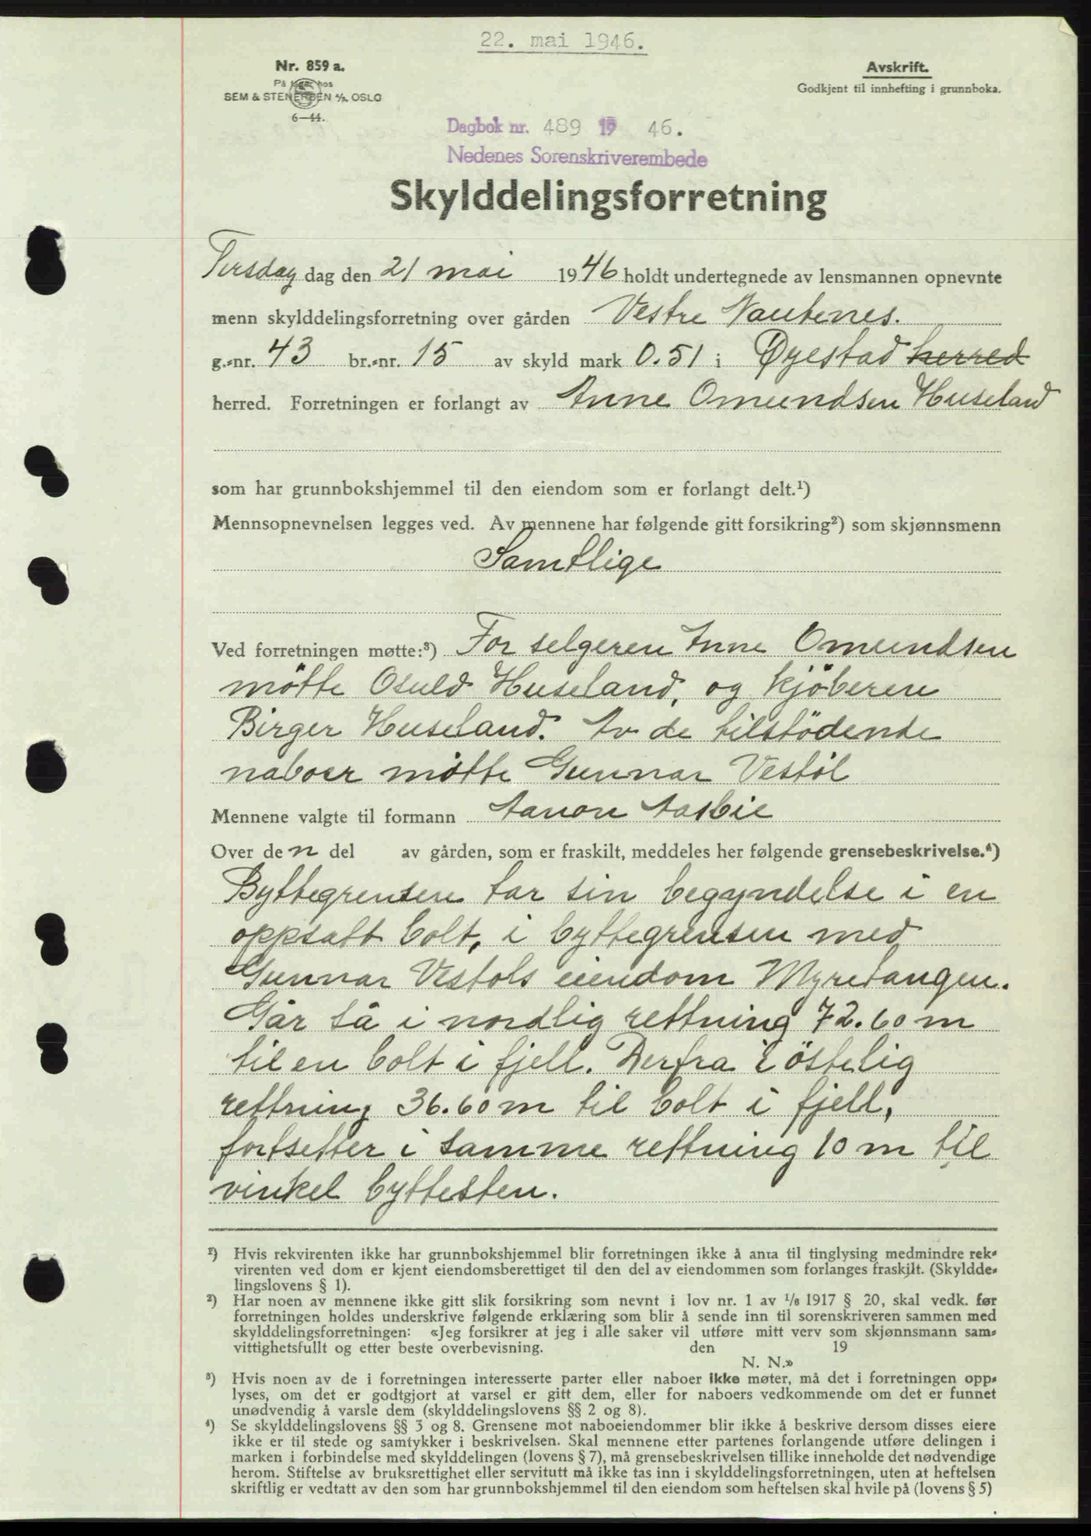 22. mai 1946.
Nr. 859 a.
På lager hos
SEM & STENERSEN A/S. OSLO
6—44.
Avskrift.
Godkjent til innhefting i grunnboka.
Dagbok nr. 489 19 46.
Nedenes Sorenskriverembede
Skylddelingsforretning
Tirsdag dag den 21 mai 1946 holdt undertegnede av lensmannen opnevnte
menn skylddelingsforretning over gården Vestre Nautenes.
g.-nr. 43 br.-nr. 15 av skyld mark 0.51 i Øyestad herred
herred. Forretningen er forlangt av Anne Omundsen Huseland
som har grunnbokshjemmel til den eiendom som er forlangt delt.¹)
Mennsopnevnelsen legges ved. Av mennene har følgende gitt forsikring²) som skjønnsmenn
Samtlige
Ved forretningen møtte:³) For selgeren Anne Omundsen
møtte Osuld Huseland, og kjøberen
Birger Huseland. Av de tilstødende
naboer møtte Gunnar Vestøl
Mennene valgte til formann Aanon Aasbie
Over den del av gården, som er fraskilt, meddeles her følgende grensebeskrivelse.⁴)
Byttegrensen tar sin begyndelse i en
oppsatt bolt, i byttegrensen med
Gunnar Vestøls eiendom Myretangen.
Går så i nordlig rettning 72.60 m
til en bolt i fjell. Derfra i østelig
rettning 36.60 m til bolt i fjell,
fortsetter i samme rettning 10 m til
vinkel byttesten.
¹) Hvis rekvirenten ikke har grunnbokshjemmel blir forretningen ikke å anta til tinglysing medmindre rek-
virenten ved dom er kjent eiendomsberettiget til den del av eiendommen som forlanges fraskilt. (Skyldde-
lingslovens § 1).
²) Har noen av mennene ikke gitt slik forsikring som nevnt i lov nr. 1 av 1/8 1917 § 20, skal vedk. før
forretningen holdes underskrive følgende erklæring som blir å sende inn til sorenskriveren sammen med
skylddelingsforretningen: «Jeg forsikrer at jeg i alle saker vil utføre mitt verv som skjønnsmann sam-
vittighetsfullt og etter beste overbevisning. den 19
N. N.»
³) Hvis noen av de i forretningen interesserte parter eller naboer ikke møter, må det i forretningen opp-
lyses, om det er godtgjort at varsel er gitt dem, eller for naboers vedkommende om det er funnet
unødvendig å varsle dem (skylddelingslovens §§ 2 og 8).
⁴) Se skylddelingslovens §§ 3 og 8. Grensene mot naboeiendommer blir ikke å beskrive dersom disses eiere
ikke er til stede og samtykker i beskrivelsen. Skal mennene etter partenes forlangende utføre delingen i
marken i forbindelse med skylddelingen (lovens § 7), må grensebeskrivelsen tillike inneholde det nødvendige
herom. Stiftelse av bruksrettighet eller servitutt må ikke tas inn i skylddelingsforretningen, uten at heftelsen
skriftlig er vedtatt av den som har grunnbokshjemmel til den eiendom som heftelsen skal hvile på (lovens § 5)